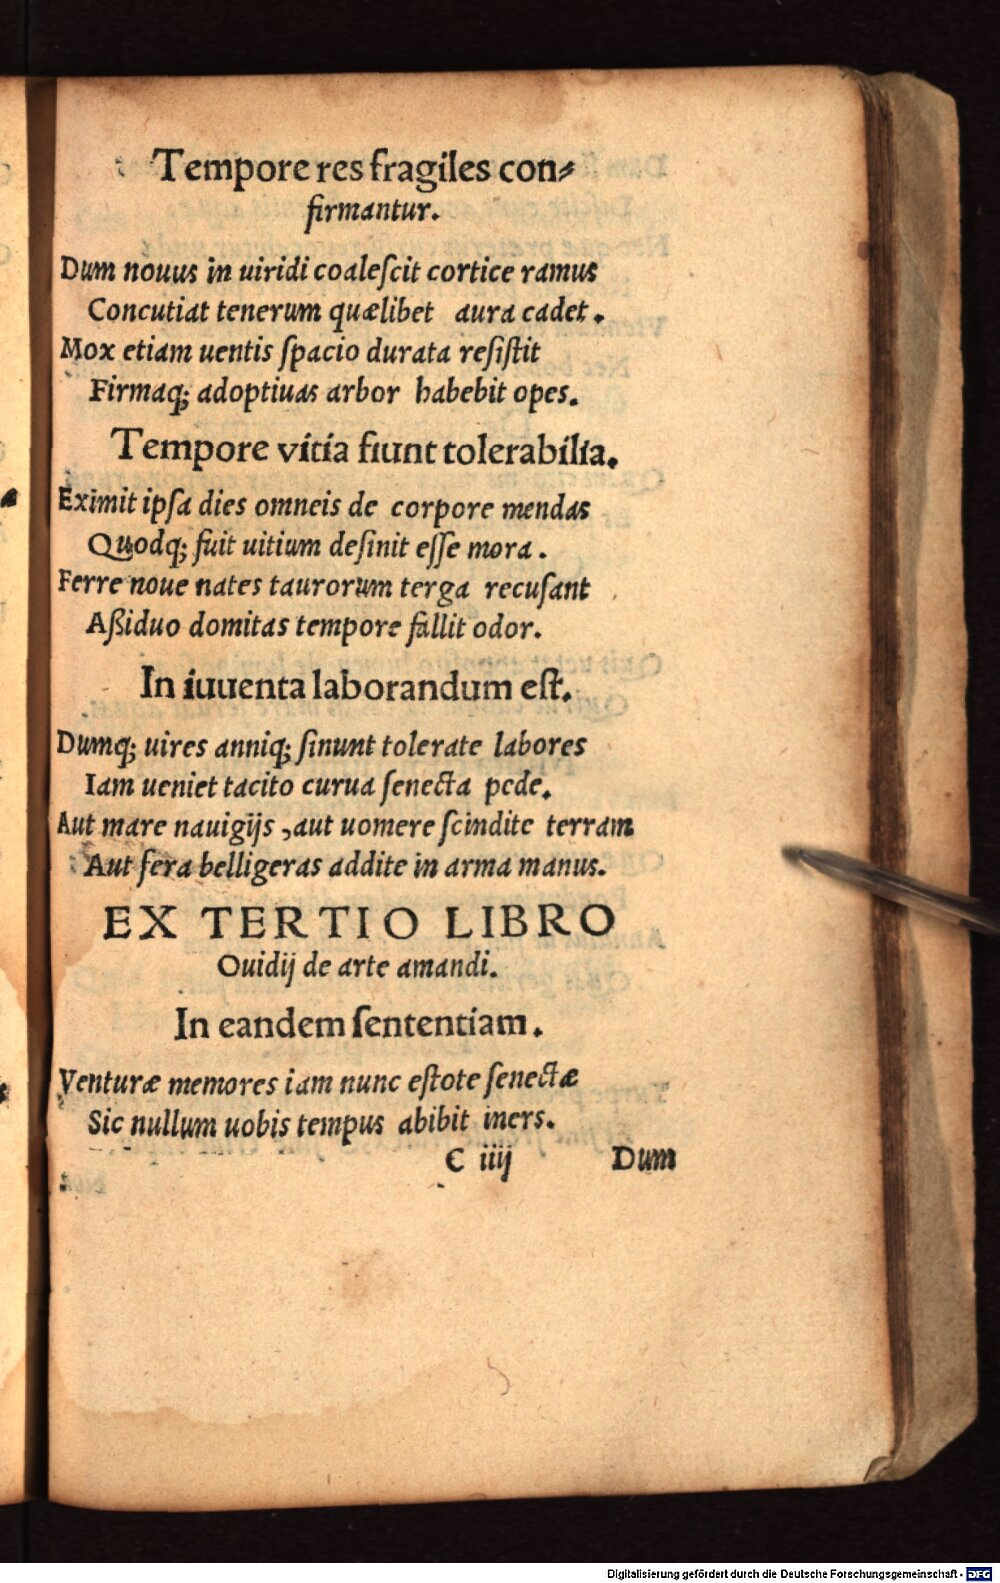 Tempore res fragiles con⸗
firmantur.
Dum nouus in uiridi coaleſcit cortice ramus
Concutiat tenerum quælibet aura cadet.
Mox etiam uentis ſpacio durata reſiſtit
Firmaq; adoptiuas arbor habebit opes.
Tempore vitia fiunt tolerabilia.
Eximit ipſa dies omneis de corpore mendas
Quodq; fuit uitium deſinit eſſe mora.
Ferre noue nates taurorum terga recuſant
Aßiduo domitas tempore fallit odor.
In iuuenta laborandum eſt.
Dumq; uires anniq; ſinunt tolerate labores
Iam ueniet tacito curua ſenecta pede.
Aut mare nauigijs, aut uomere ſcindite terram
Aut fera belligeras addite in arma manus.
EX TERTIO LIBRO
Ouidij de arte amandi.
In eandem ſententiam.
Venturæ memores iam nunc eſtote ſenectæ
Sic nullum uobis tempus abibit iners.
C iiij Dum
Digitalisierung gefördert durch die Deutsche Forschungsgemeinschaft - DFG